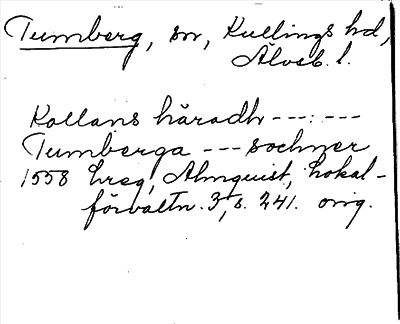 Tumberg, sn, Kullings hd,
Älvsb. l.
Kollans häradh ---:---
Tumberga --- sochner
1558 hreg, Almquist, Lokal-
förvaltn. 3, s. 241. orig.